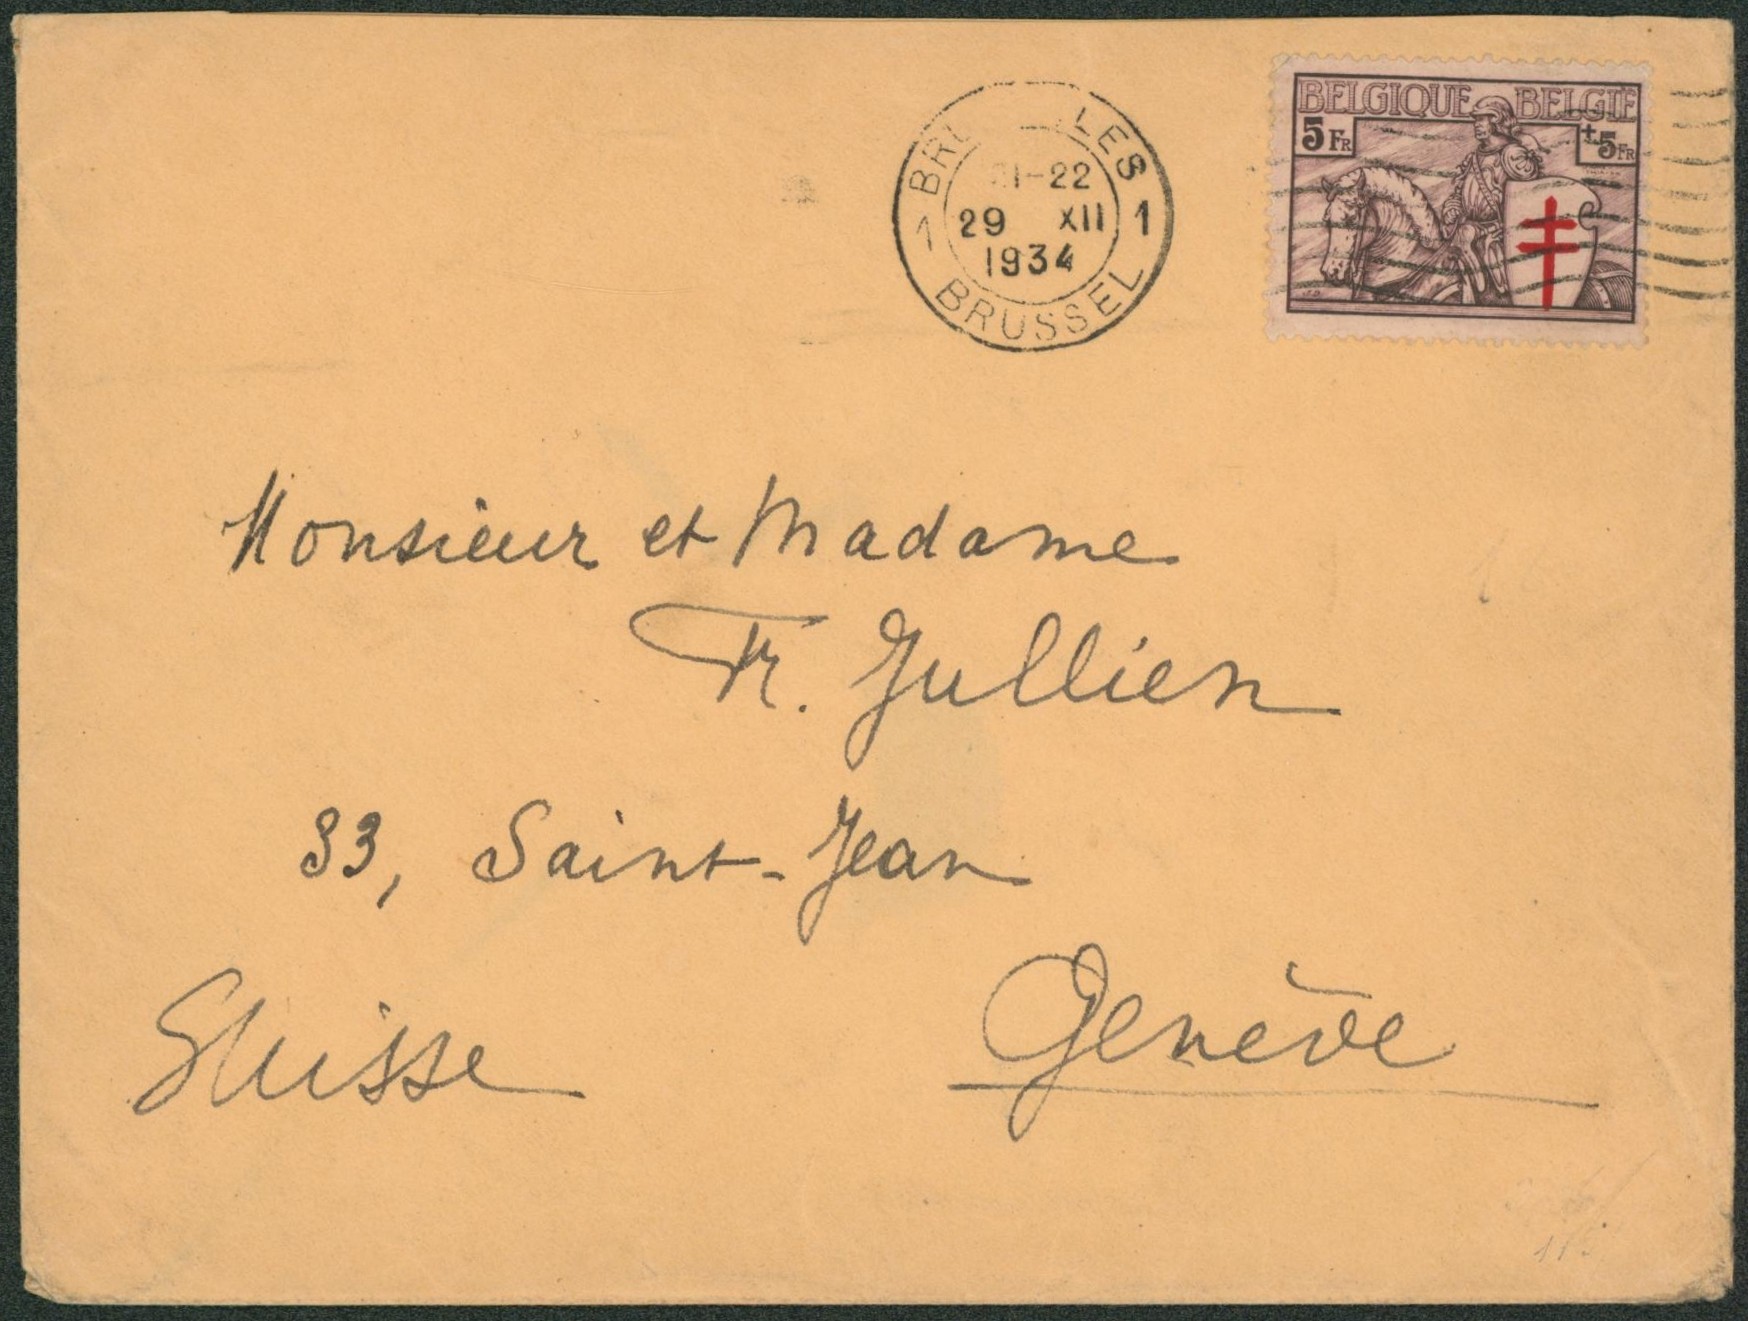 BELGIQUE BELGIË
5 FR +5 FR
LES
21-22
1 29 XII 1
1934
BRUSSEL
Monsieur et Madame
Fr. Jullien
33, Saint-Jean
Genève
Suisse